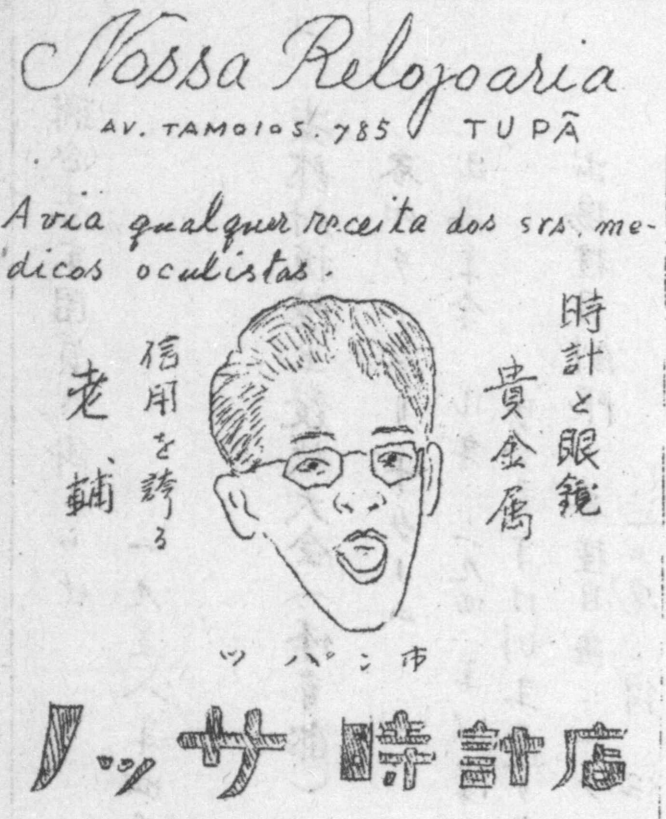 Nossa Relojoaria
AV. TAMOIOS. 785 TUPÃ
Avia qualquer receita dos srs. me-
dicos oculistas.
時計と眼鏡
貴金属
信用を誇る
老輔
ツパン市
ノッサ時計店